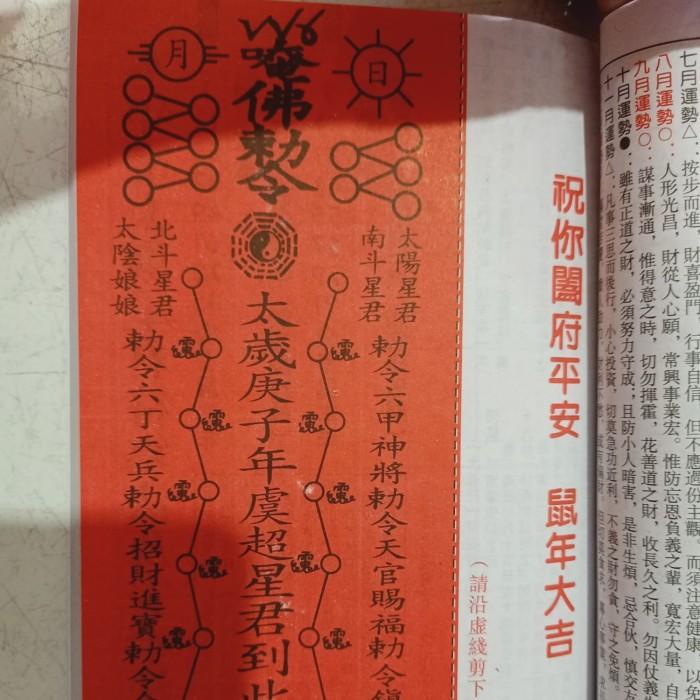 七月運勢△：按步而進，財喜盈門，行事自信，但不應過份主觀。而須注意健康，以
八月運勢○：人形光昌，財從人心願，常興事業宏。惟防忘恩負義之輩，寬宏大量，自
九月運勢○：謀事漸通，惟得意之時，切勿揮霍，花善道之財，收長久之利。勿因仗義
十月運勢●：雖有正道之財，必須努力守成；且防小人暗害，是非生煩，忌合伙，慎交
十一月運勢△：凡事三思而後行，小心投資，切莫急功近利，不義之財勿貪，守之免煩
祝你闔府平安　鼠年大吉
（請沿虛綫剪下
日
月
佛勅令
太陽星君
南斗星君
勅令六甲神將勅令天官賜福勅令鎮
太歲庚子年虞超星君到此
北斗星君
太陰娘娘
勅令六丁天兵勅令招財進寶勅令